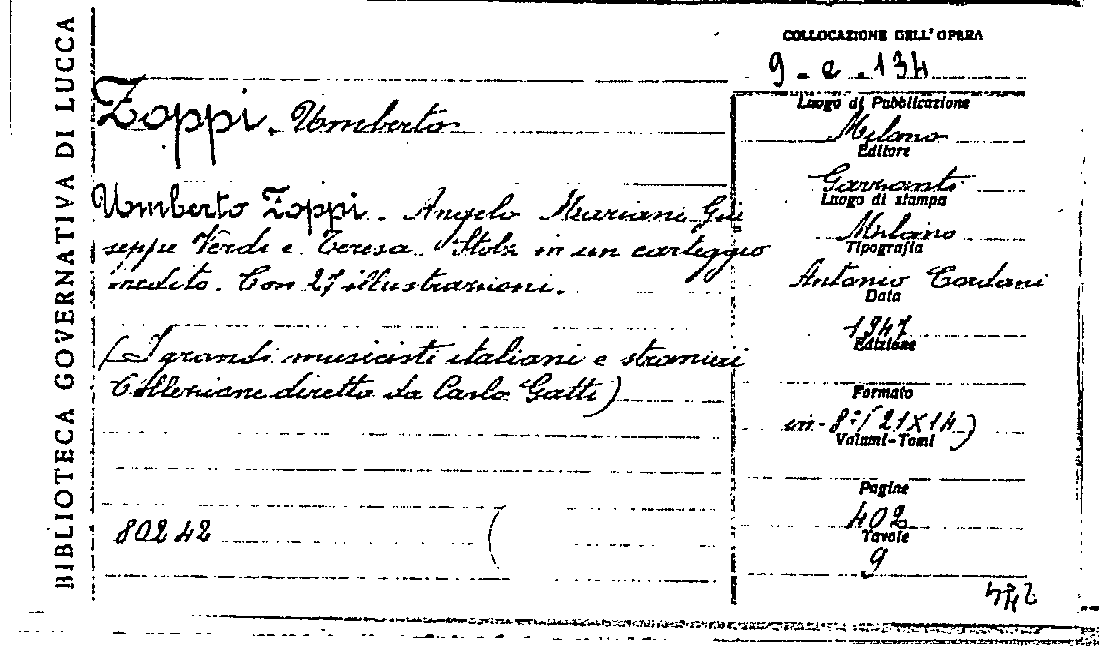 BIBLIOTECA GOVERNATIVA DI LUCCA
COLLOCAZIONE DELL'OPERA
9. e. 134
Zoppi, Umberto
Umberto Zoppi. Angelo Mariani Giu
seppe Verdi e Teresa Stolz in un carteggio
inedito. Con 27 illustrazioni.
(I grandi musicisti italiani e stranieri
Collezione diretta da Carlo Gatti)
80242
Luogo di Pubblicazione
Milano
Editore
Garzanti
Luogo di stampa
Milano
Tipografia
Antonio Cordani
Data
1947
Edizione
Formato
in-8°(21X14)
Volumi-Tomi
Pagine
402
Tavole
9